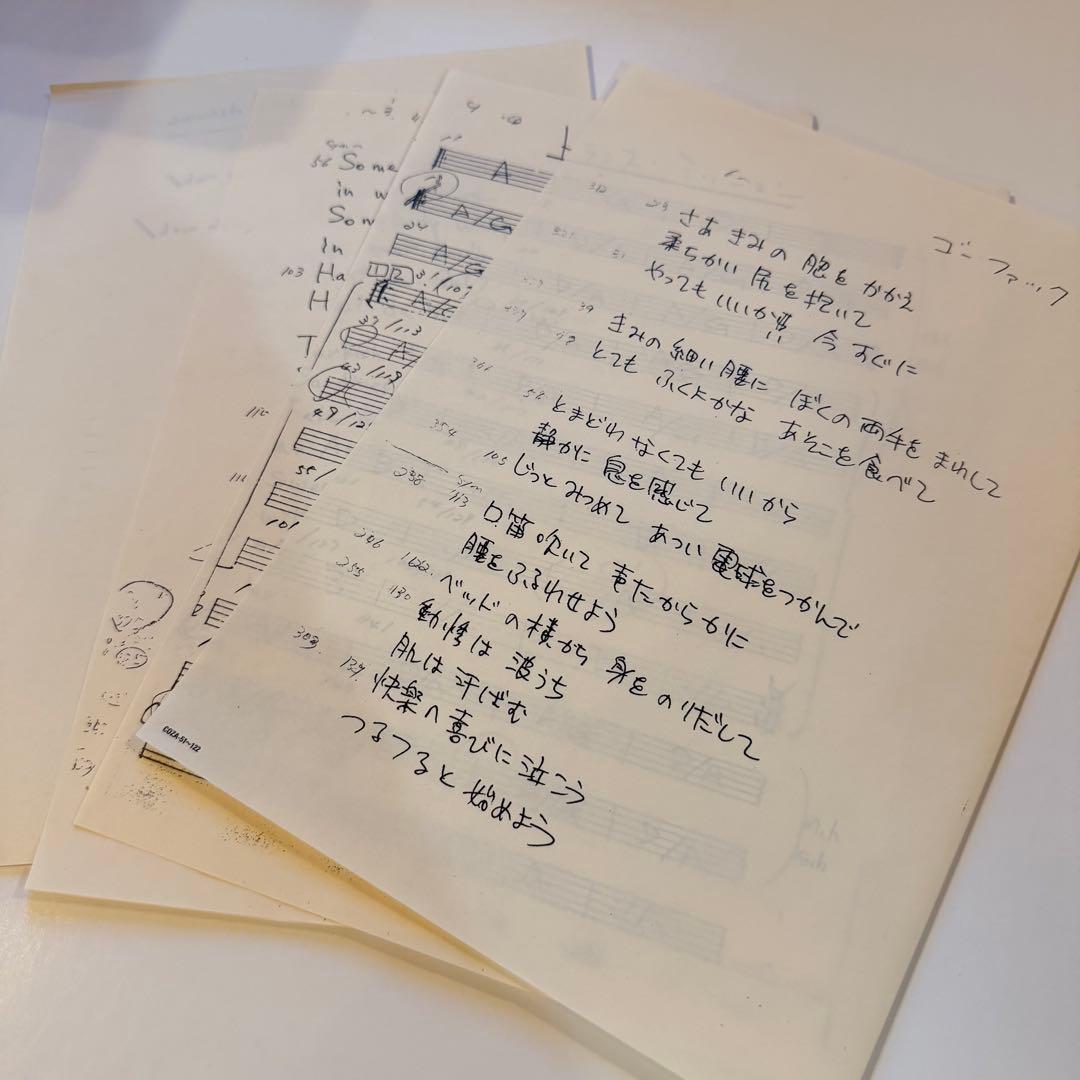 ゴーファック
312 23 さあ きみの 腹を かかえ
柔らかい 尻を 抱いて
321 31 やっても いいか!! 今 すぐに
39 きみの 細い 腰に ぼくの 両手を まわして
とても ふくよかな あそこを 食べて
361 58 とまどわ なくても いいから
静かに 息を 感じて
354 105 じっと みつめて あつい 電球を つかんで
238 113 口笛 吹いて 声たからかに
腰を ふるわせよう
246 122. ベッドの 横から 身を のりだして
255 130 動悸は 波うち
肌は 汗ばむ
303. 139 快楽へ 喜びに 泣こう
つるつると 始めよう
CDZA-51~122
58 Some
in w
Som
in
103 Ha
H
T
110
111
A
A/G
24
A/G
31/107
A/G
37/113
A
43/119
49/12
55/
101